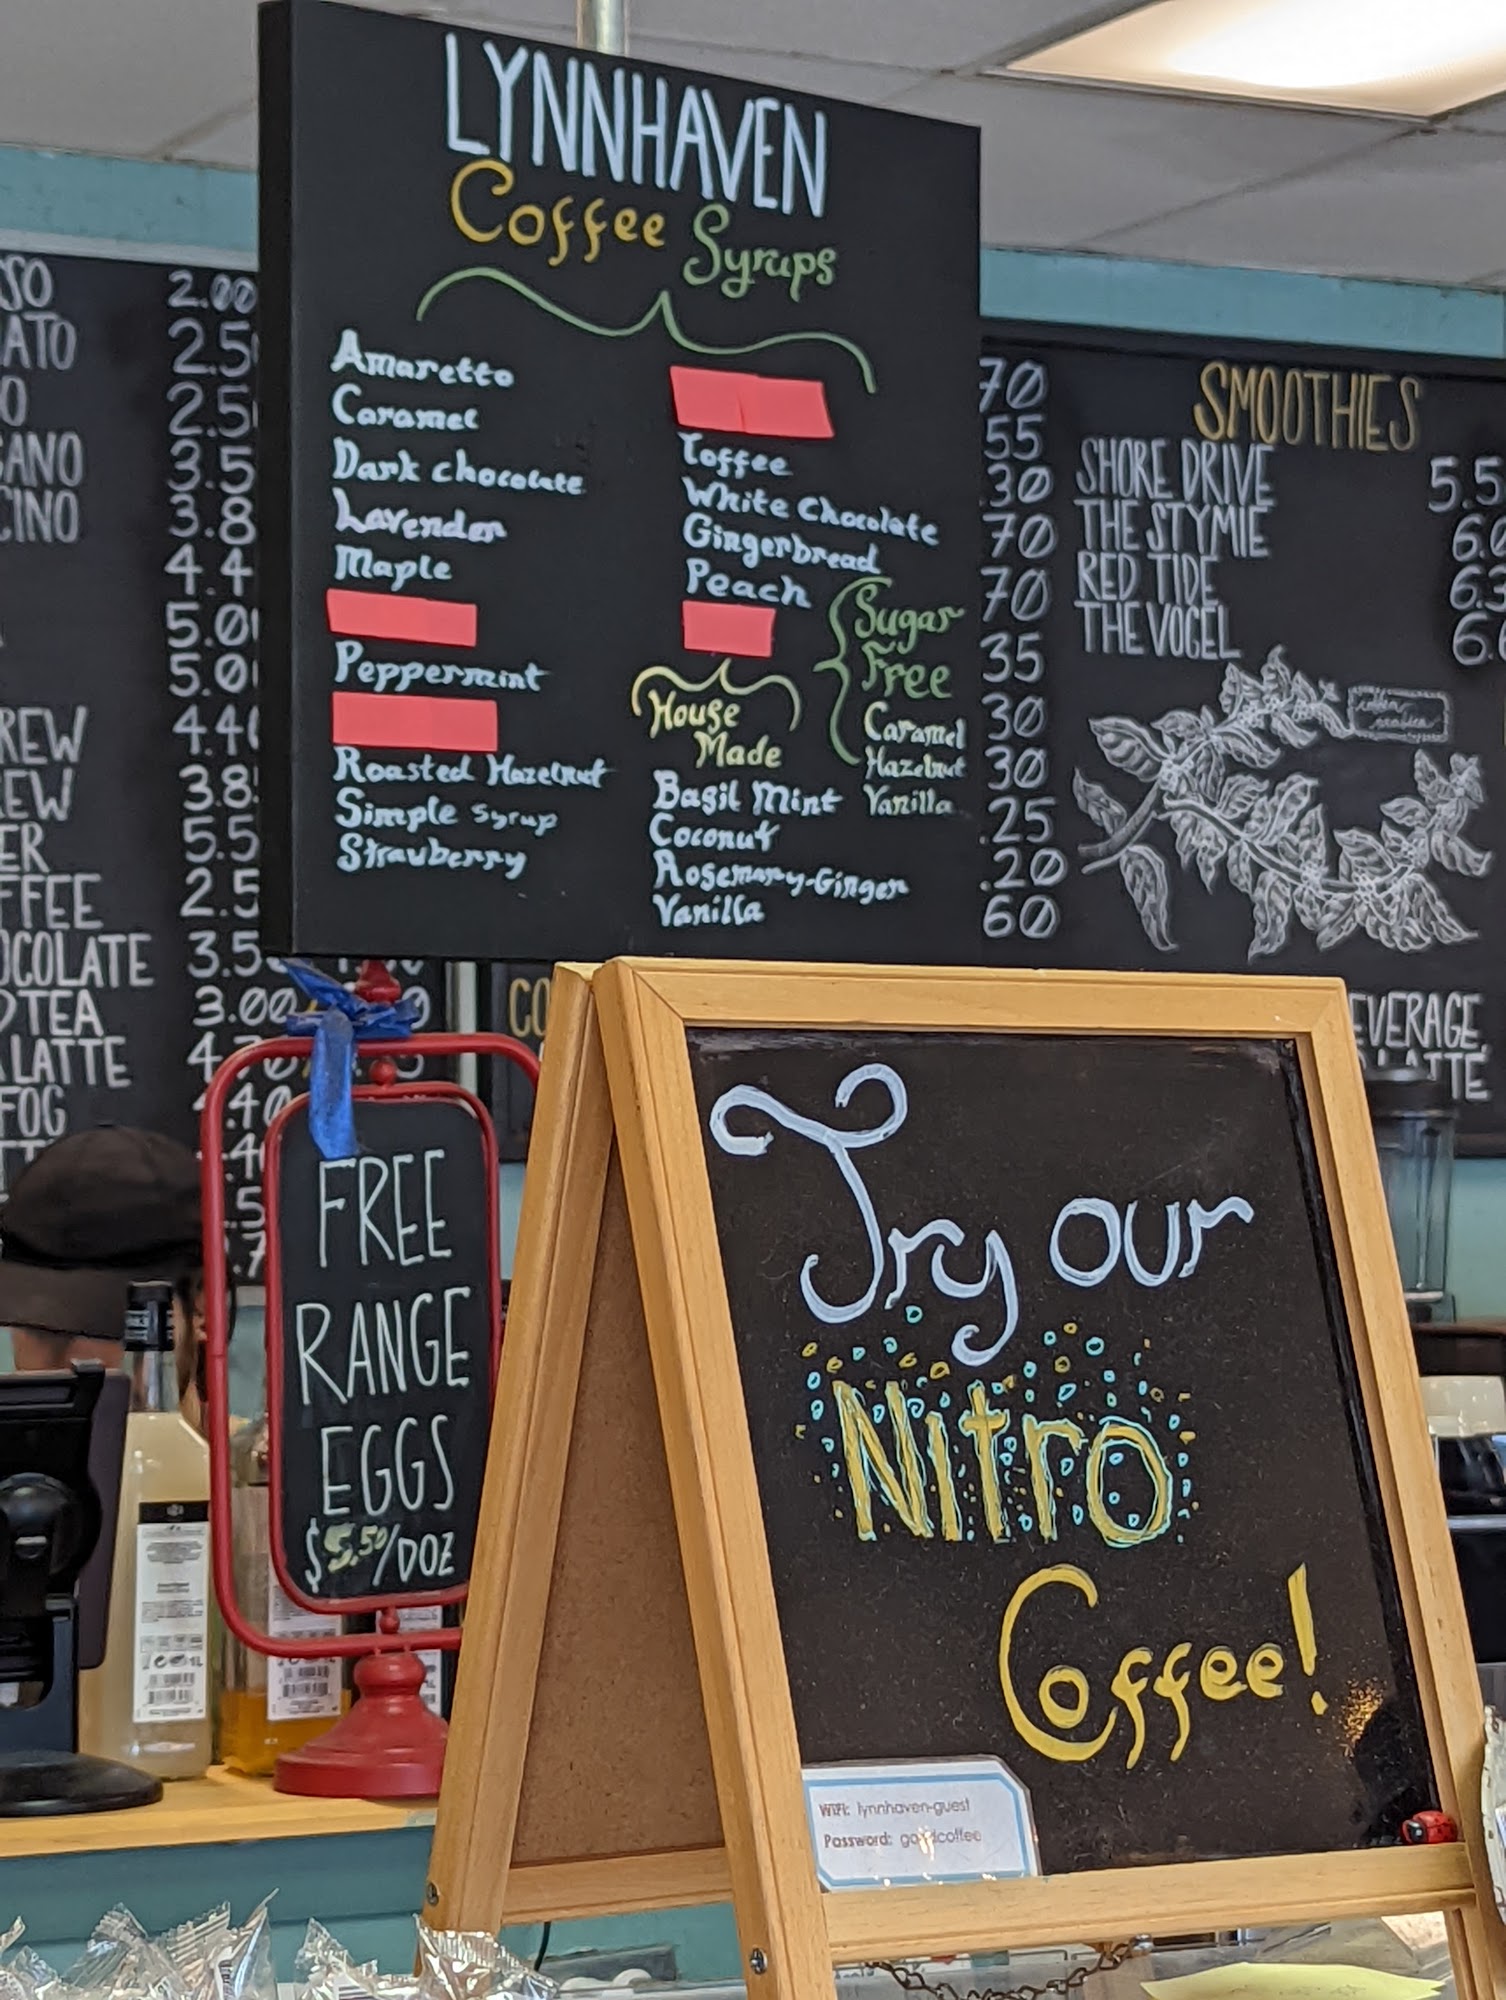 LYNNHAVEN
Coffee Syrups
Amaretto
Caramel
Dark chocolate
Lavender
Maple
Peppermint
Roasted Hazelnut
Simple syrup
Strawberry
Toffee
White Chocolate
Gingerbread
Peach
House
Made
Basil Mint
Coconut
Rosemary-Ginger
Vanilla
Sugar
Free
Caramel
Hazelnut
Vanilla
SSO 2.00
ATO 2.5
O 2.5
CANO 3.5
CINO 3.8
4.4
5.0
5.0
REW 4.40
EW 3.8
ER 5.5
FFEE 2.5
OCOLATE 3.5
TEA 3.00
LATTE
FOG .40
70
55
30
70
70
35
30
30
.25
.20
60
SMOOTHIES
SHORE DRIVE 5.5
THE STYMIE 6.0
RED TIDE 6.3
THE VOGEL 6.
CO
EVERAGE,
LATTE
FREE
RANGE
EGGS
$5.50/DOZ
Try our
Nitro
Coffee!
WiFi: lynnhaven-guest
Password: goodcoffee